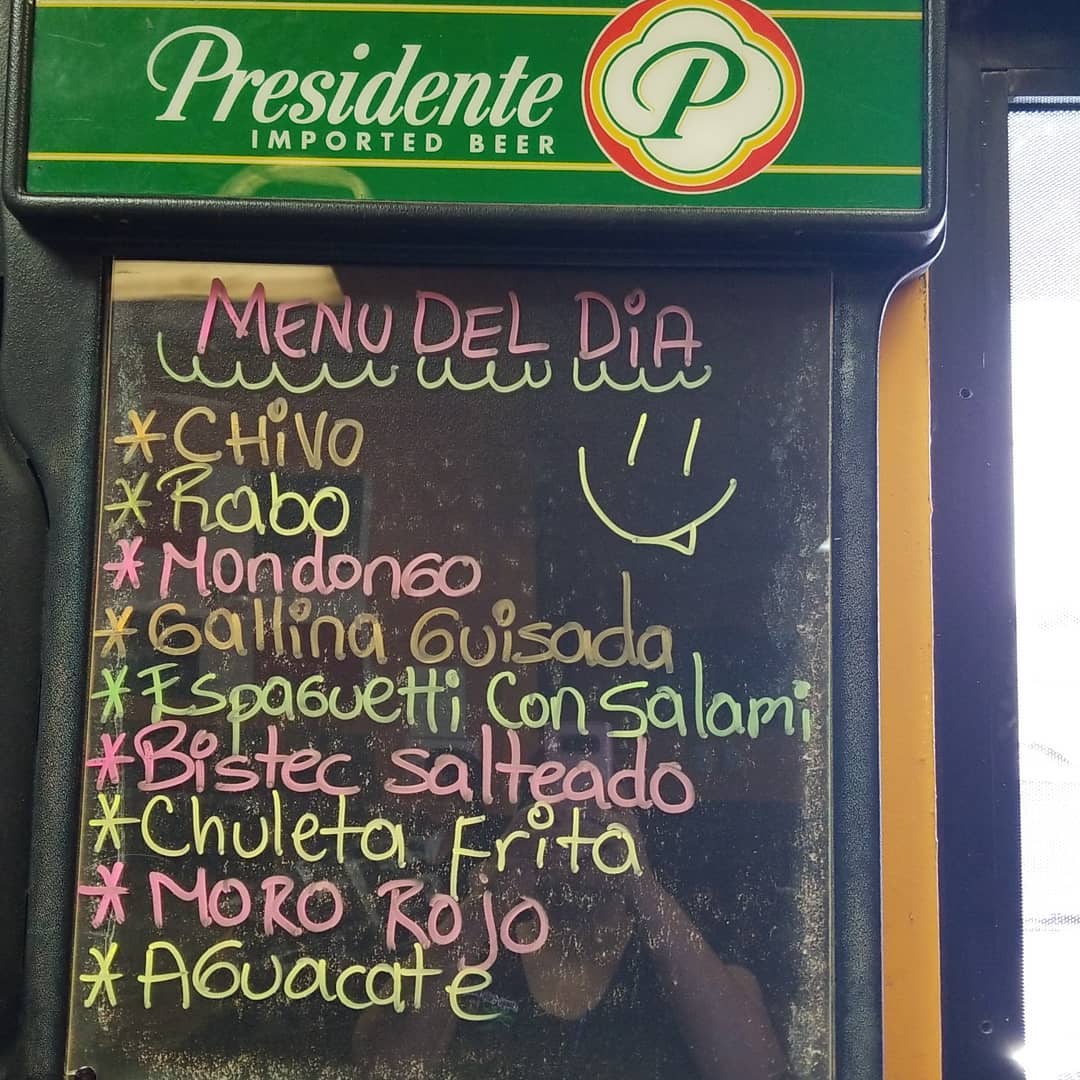 Presidente
IMPORTED BEER
P
MENU DEL DiA
* CHiVO
* Rabo
* Mondongo
* Gallina Guisada
* Espaguetti Con Salami
* Bistec salteado
* Chuleta Frita
* MORO Rojo
* Aguacate